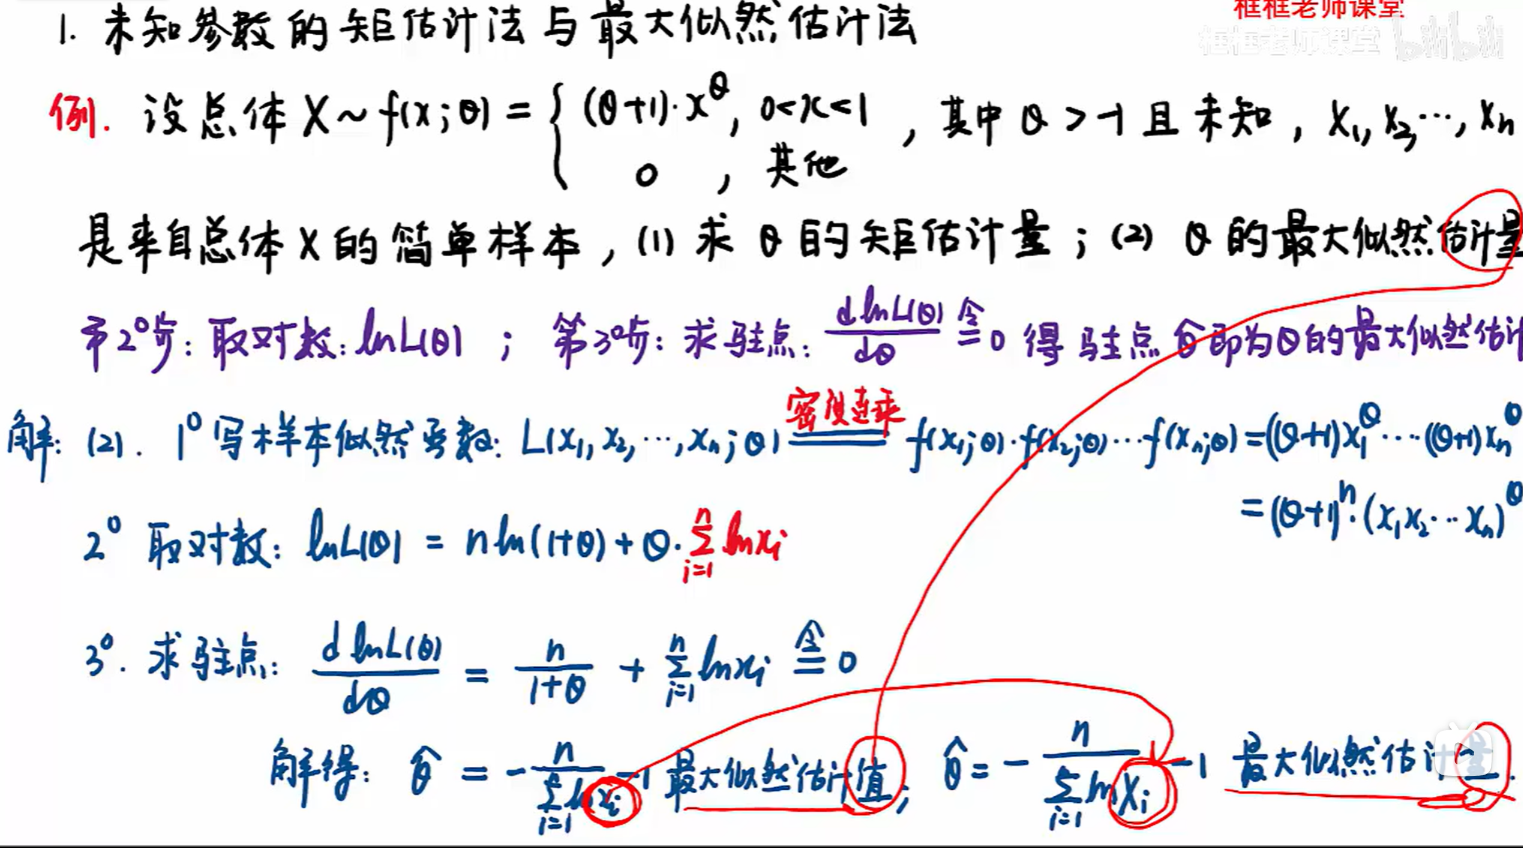 框框老师课堂
框框老师课堂 bilibili
1. 未知参数的矩估计法与最大似然估计法
例. 设总体 X~f(x;θ) = { (θ+1)·x^θ, 0<x<1 , 其中 θ>-1 且未知, X₁, X₂, ⋯, Xn
0 , 其他
是来自总体 X 的简单样本, (1) 求 θ 的矩估计量; (2) θ 的最大似然估计量
第2°步: 取对数: lnL(θ) ; 第3°步: 求驻点: dlnL(θ)/dθ 令= 0 得 驻点 θ̂ 即为θ的最大似然估计
密度连乘
解: (2). 1° 写样本似然函数: L(x₁, x₂, ⋯, xn; θ) = f(x₁;θ)·f(x₂;θ)⋯f(xn;θ) = ((θ+1)x₁^θ⋯((θ+1)xn^θ
= (θ+1)^n·(x₁x₂⋯xn)^θ
2° 取对数: lnL(θ) = nln(1+θ) + θ·∑_{i=1}^{n} lnxi
3°. 求驻点: dlnL(θ)/dθ = n/(1+θ) + ∑_{i=1}^{n} lnxi 令= 0
解得: θ̂ = -n/(∑_{i=1}^{n} lnxi) -1 最大似然估计值; θ̂ = -n/(∑_{i=1}^{n} lnXi) -1 最大似然估计量.